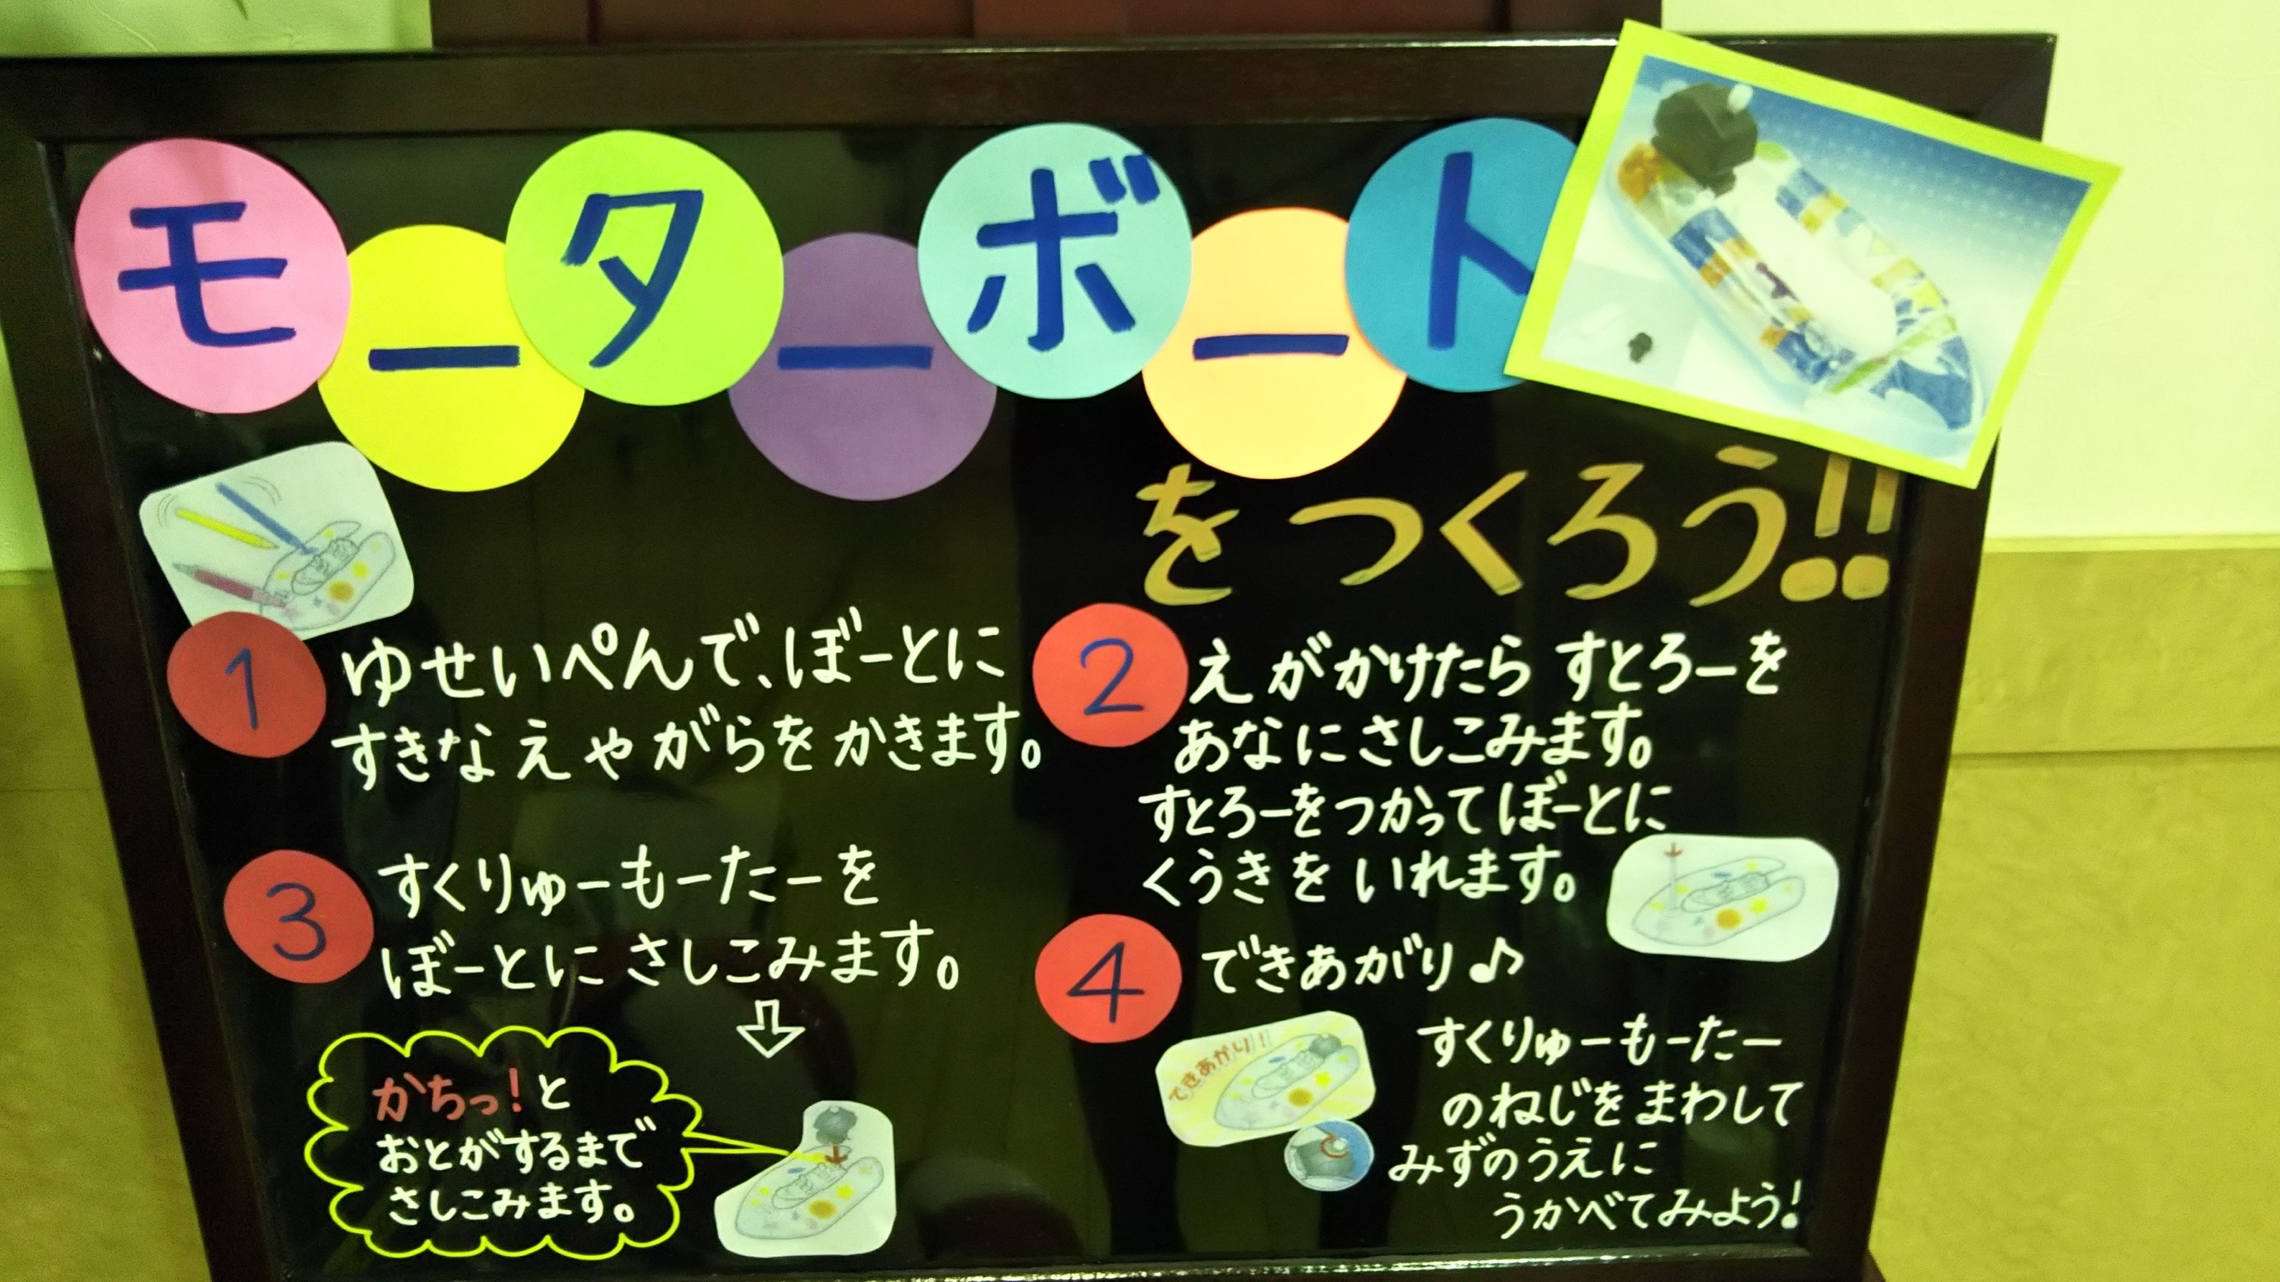 モーターボート
をつくろう!!
1 ゆせいぺんで、ぼーとに
すきなえやがらをかきます。
2 えがかけたら すとろーを
あなにさしこみます。
すとろーをつかってぼーとに
くうきをいれます。
3 すくりゅーもーたーを
ぼーとにさしこみます。
⇩
かちっ!と
おとがするまで
さしこみます。
4 できあがり♪
できあがり!!
すくりゅーもーたー
のねじをまわして
みずのうえに
うかべてみよう!